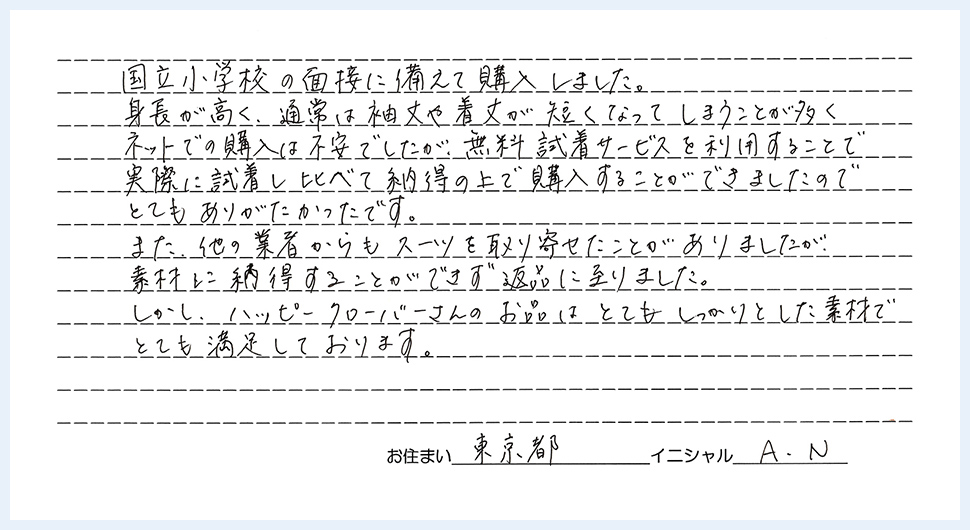 国立小学校の面接に備えて購入しました。
身長が高く、通常は袖丈や着丈が短くなってしまうことが多く
ネットでの購入は不安でしたが、無料試着サービスを利用することで
実際に試着し比べて納得の上で購入することができましたので
とてもありがたかったです。
また、他の業者からもスーツを取り寄せたことがありましたが、
素材に納得することができず返品に至りました。
しかし、ハッピークローバーさんのお品はとてもしっかりとした素材で
とても満足しております。
お住まい 東京都 イニシャル A.N